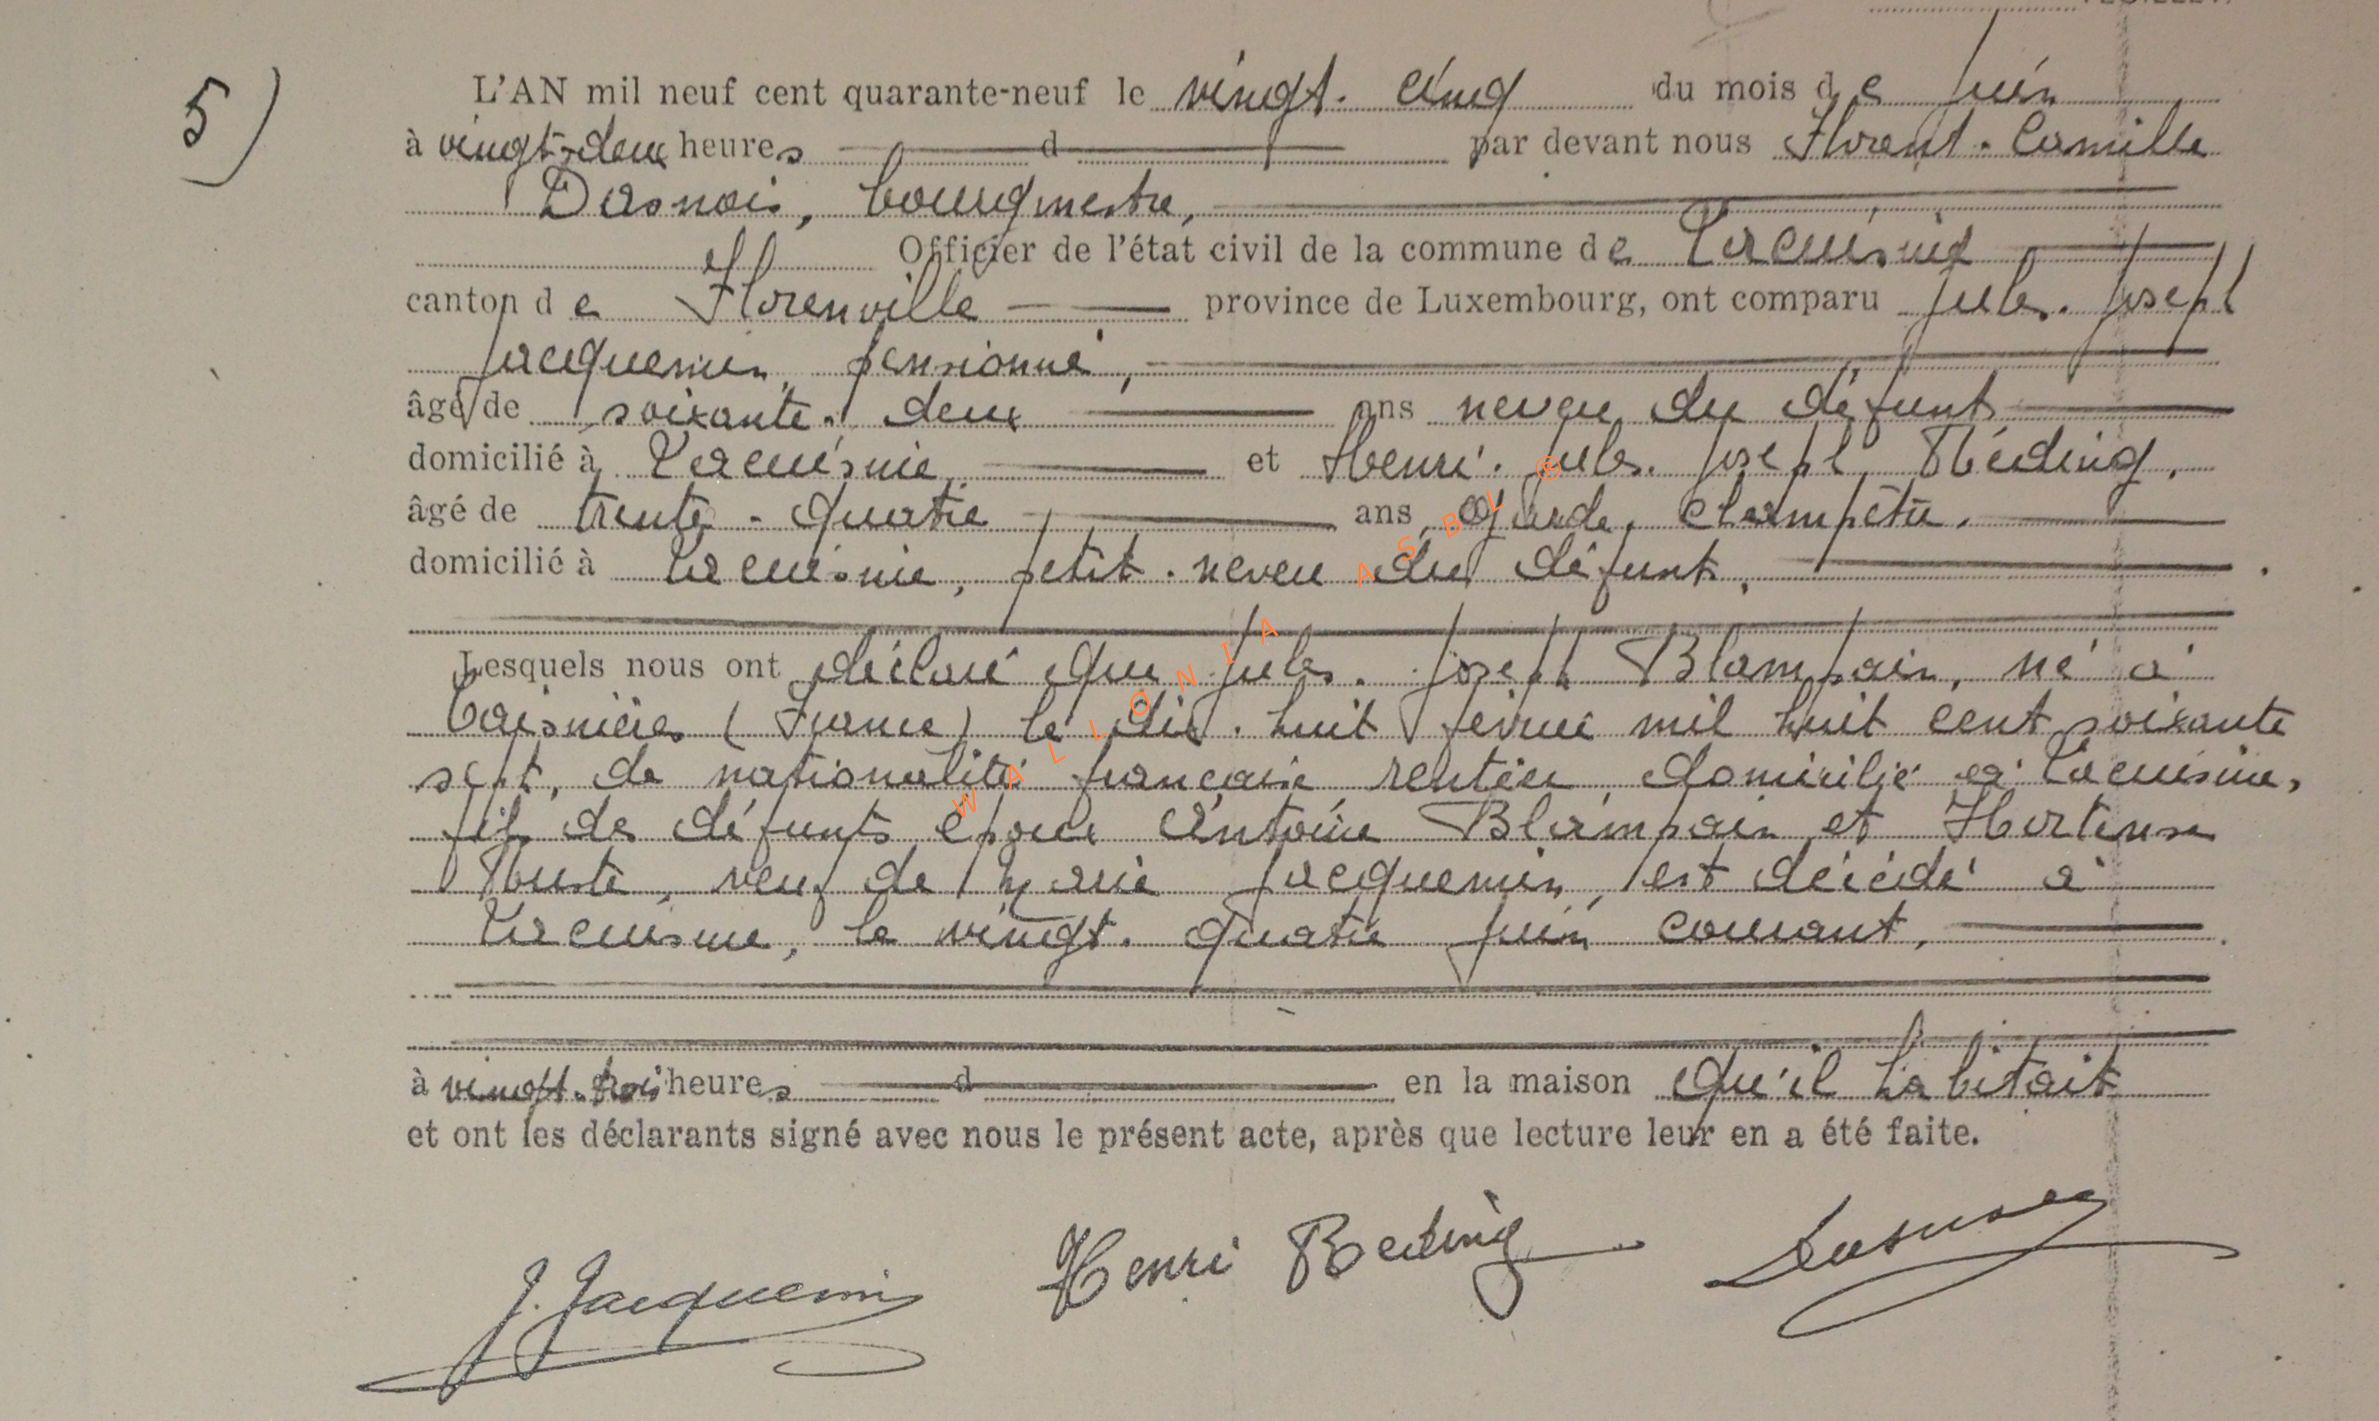 5)
L'AN mil neuf cent quarante-neuf le vingt-cinq du mois de Juin
à vingt-deux heures d par devant nous Florent-Camille
Dasnois, bourgmestre,
Officier de l'état civil de la commune de Lacuisine
canton de Florenville province de Luxembourg, ont comparu Jules-Joseph
Jacquemin, pensionné,
âgé de soixante-deux ans neveu du défunt
domicilié à Lacuisine et Henri-Jules-Joseph Réding,
âgé de trente-quatre ans, garde champêtre,
domicilié à Lacuisine, petit-neveu du défunt,
Lesquels nous ont déclaré que Jules-Joseph Blampain, né à
(France) le dix-huit février mil huit cent soixante
sept, de nationalité française rentier, domicilié à Lacuisine,
fils de défunts époux Antoine Blampain et Hortense
veuf de Marie Jacquemin, est décédé à
Lacuisine, le vingt-quatre juin courant,
à vingt-trois heures d en la maison qu'il habitait
et ont les déclarants signé avec nous le présent acte, après que lecture leur en a été faite.
J. Jacquemin Henri Reding Dasnois
WALLONIA ASBL ®